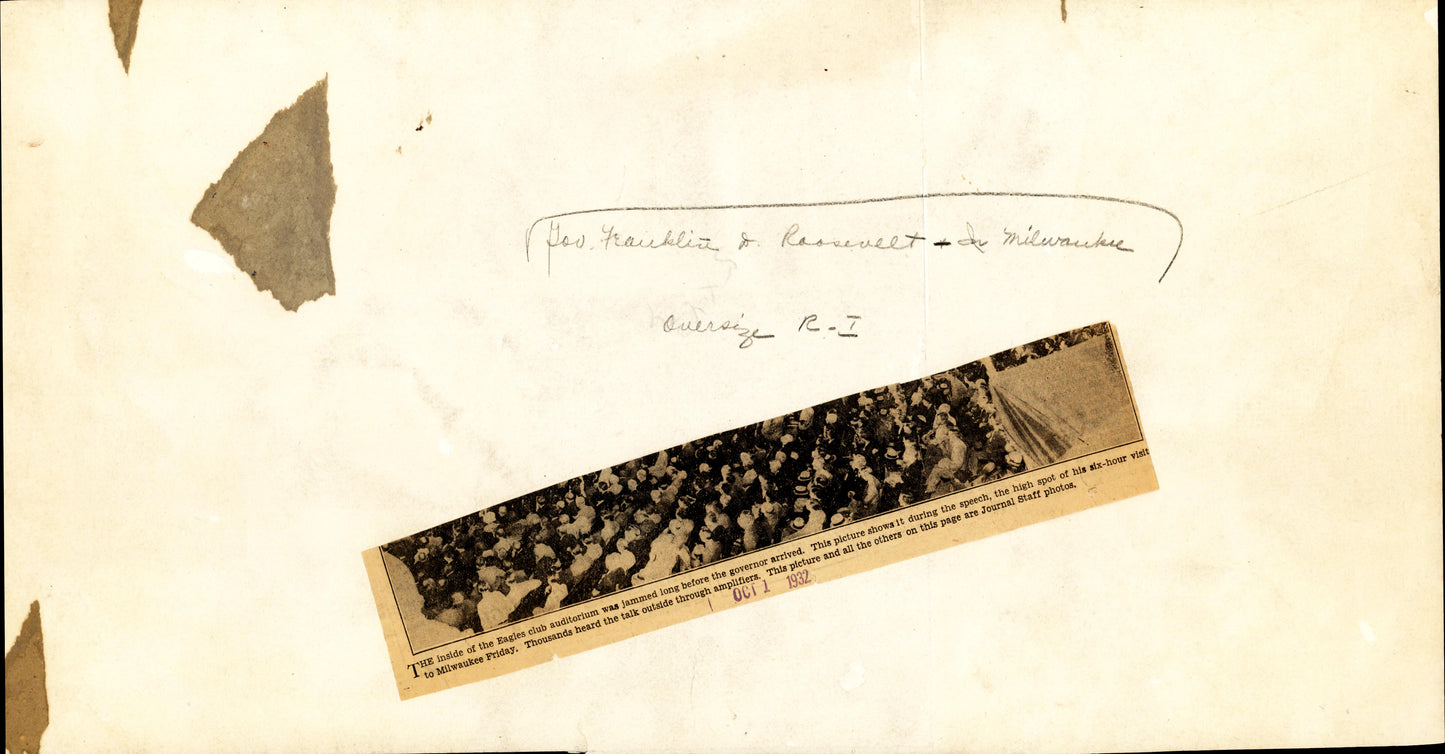 Gov. Franklin D. Roosevelt - In Milwaukee
Oversize R-I
THE inside of the Eagles club auditorium was jammed long before the governor arrived. This picture shows it during the speech, the high spot of his six-hour visit
to Milwaukee Friday. Thousands heard the talk outside through amplifiers. This picture and all the others on this page are Journal Staff photos.
OCT 1 1932